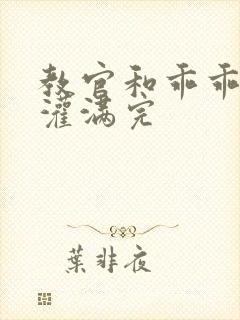 教官和乖乖
灌满完
葉非夜